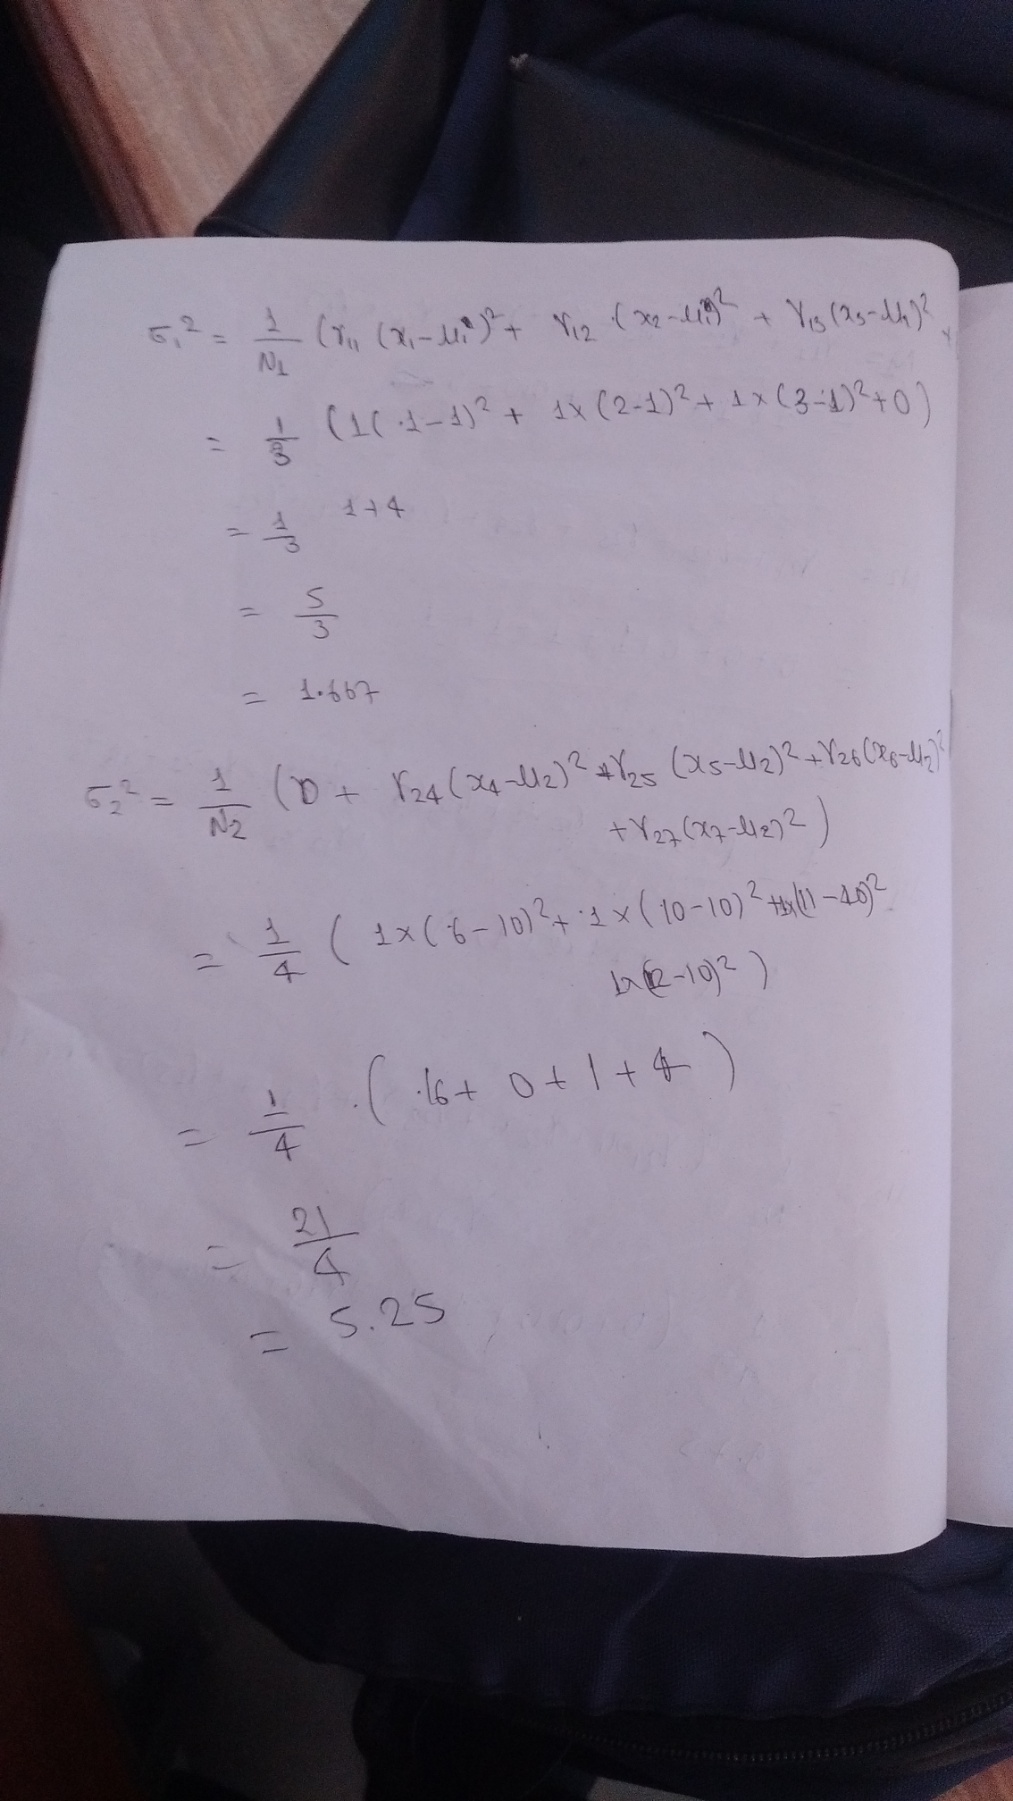 σ₁² = 1/N₁ (γ₁₁ (x₁-μ₁)² + γ₁₂ (x₂-μ₁)² + γ₁₃ (x₃-μ₁)²
= 1/3 (1(1-1)² + 1×(2-1)² + 1×(3-1)²+0)
= 1/3 1+4
= 5/3
= 1.667
σ₂² = 1/N₂ (0 + γ₂₄(x₄-μ₂)² + γ₂₅ (x₅-μ₂)² + γ₂₆(x₆-μ₂)²
+γ₂₇(x₇-μ₂)²)
= 1/4 ( 1×(6-10)² + 1×(10-10)² +1×(11-10)²
1×(12-10)² )
= 1/4 (16+ 0+1+4)
= 21/4
= 5.25